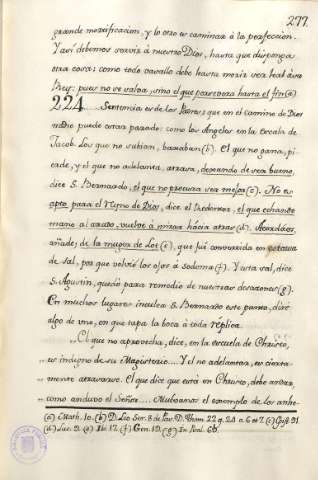 277.
grande mortificacion; y lo otro es caminar à la perfeccion.
Y asi debemos servir à nuestro Dios, hasta que disponga
otra cosa; como todo vasallo debe hasta morir ser leal à su
Rey: pues no se salva, sino el que persevera hasta el fin (a)
224.... Sentencia es de los Padres; que en el camino de Dios
nadie puede estar parado: como los Angeles en la Escala de
Jacob. Los que no subian, baxaban (b). El que no gana, pi-
erde, y el que no adelanta, atrasa, dexando de ser bueno,
dice S. Bernardo, el que no procura ser mejor (c). No es
apto para el Reyno de Dios, dice el Redentor, el que echando
mano al arado, vuelve à mirar hácia atras (d). Acordáos,
añade, de la muger de Lot (e), que fué convertida en estatua
de sal, por que volvió los ojos à sodoma (f). Y esta sal, dice
S. Agustin, quedó para remedio de nuestras desazones (g).
En muchos lugares inculca S. Bernardo este punto, diré
algo de uno, en que tapa la boca à toda réplica.
„El que no aprovecha, dice, en la escuela de Christo,
„es indigno de su Magisterio.... Y el no adelantar, es cierta-
„mente atrasarse. El que dice que está en Christo, debe andar,
„como anduvo el Señor.... Mudamos el exemplo de los anhe-
(a) Math. 10. (b) D. Leo Ser. 8 de Pas. D. Bern. 22 q. 24 a. 6 (c) Epist 91.
(d) Luc. 9. (e) Ibi 17. (f) Gen. 19. (g) In Psal. 68.